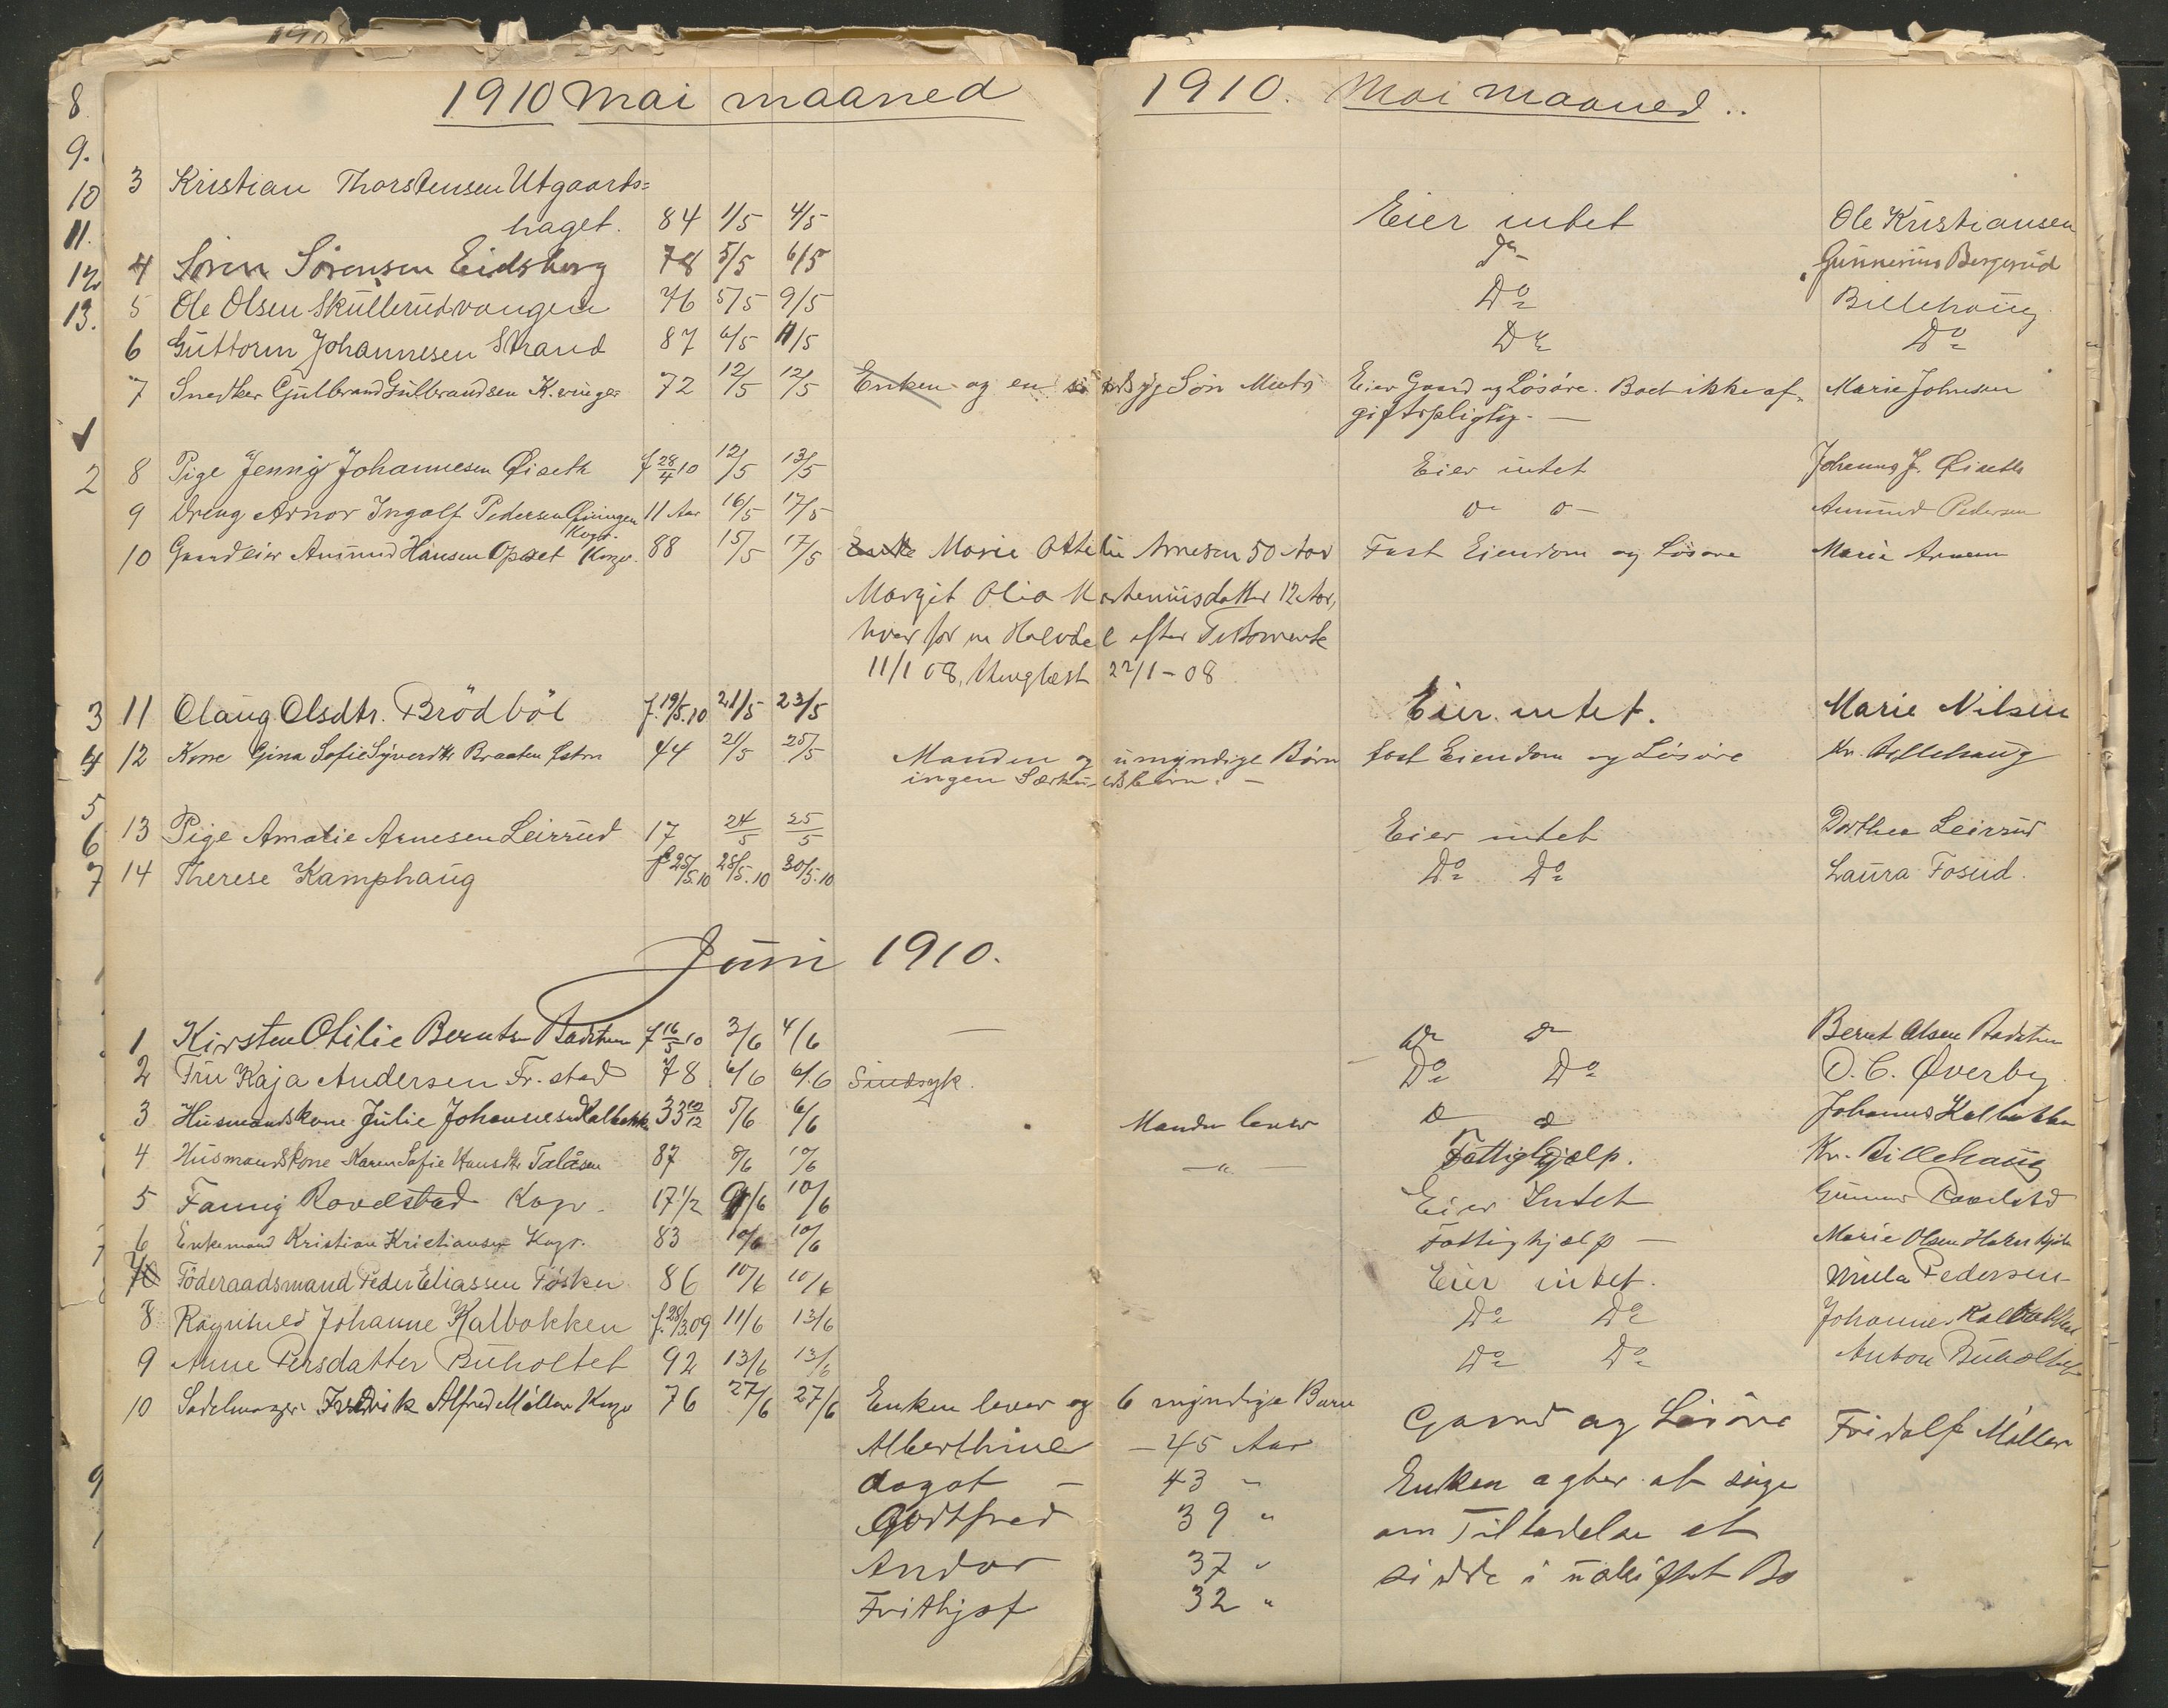 1910 Mai maaned
1910. Mai maaned..
8
9.
10
11.
12
13.
3 Kristian Thorstensen Utgaards=
haget. 84 1/5 4/5 Eier intet Ole Kristiansen
4 Søren Sørensen Eidsberg 78 5/5 6/5 Do Gunnerius Bergerud
5 Ole Olsen Skullerudvangen 76 5/5 9/5 Do Billehaug
6 Guttorm Johannesen Strand 87 6/5 11/5 Do Do
7 Snedker Gulbrand Gulbrandsen K.vinger 72 12/5 12/5 Enken og en Søn Eier Gaard og Løsøre. Boet ikke af-
giftspligtig. — Marie Johnsen
2 8 Pige Jenny Johannesen Øiseth f 28/4 10 12/5 13/5 Eier intet Johannes J. Øiseth
9 Dreng Arnor Ingolf Pedersen 11 Aar 16/5 17/5 Do Do Amund Pedersen
10 Gaardeier Amund Hansen Opset Kongv. 88 15/5 17/5 Enke Marie Ottilie Arnesen 50 Aar Fast Eiendom og Løsøre Marie Arnesen
Margit Olia Martheniusdatter 12 Aar,
hver for en Halvdel efter Testamente
11/1 08, thinglæst 22/1-08
3 11 Olaug Olsdtr. Brödböl f. 19/5.10 21/5 23/5 Eier intet. Marie Nilsen
4 12 Kone Gina Sofie Syverdtr Braaten 44 21/5 25/5 Manden og umyndige Børn fast Eiendom og Løsøre Kr. Billehaug
ingen Særkuldsbørn. —
5
6 13 Pige Amalie Arnesen Leirrud 17 24/5 25/5 Eier intet Dorthea Leirrud
7 14 Therese Kamphaug f 25/5.10 28/5.10 30/5.10 Do Do Laura Fosud.
Juni 1910.
1 Kirsten Otilie Berntsen Badstuen f 16/5 10 3/6 4/6 Do Do Bernt Olsen Badstuen
2 Fru Kaja Andersen Fr.stad 78 6/6 6/6 Sindsyk. Do Do O. C. Øverby
3 Husmandskone Julie Johannesen Kalbakken 33 10/12 5/6 6/6 Manden lever Do Do Johannes Kalbakken
4 Husmandskone Karen Sofie Hansdtr Talåsen 87 8/6 10/6 — " — Fattighjælp. Kr. Billehaug
5 Fanny Rovelstad Kogv. 17 1/2 9/6 10/6 Eier Intet Gunnar Rovelstad
6 Enkemand Kristian Kristiansen Kogv. 83 10/6 10/6 Fattighjælp — Marie Olsen
7 Föderaadsmand Peder Eliassen Fösker 86 10/6 10/6 Eier intet. Pedersen
8 Ragnhild Johanne Kalbakken f. 28/3.09 11/6 13/6 Do Do Johannes Kalbakken
9 Anne Persdatter Buholtet 92 13/6 13/6 Do Do Anton Buholtet
10 Sadelmager Fredrik Alfred Møller Kongv 76 27/6 27/6 Enken lever og 6 myndige Barn Gaard og Løsøre Fridolf Møller
Alberthine — 45 Aar
Dagot — 43 " Enken agter at søge
Godtfred 39 " om Tilladelse at
Andor 37 " sidde i uskiftet Bo
Frithjof 32 "
9